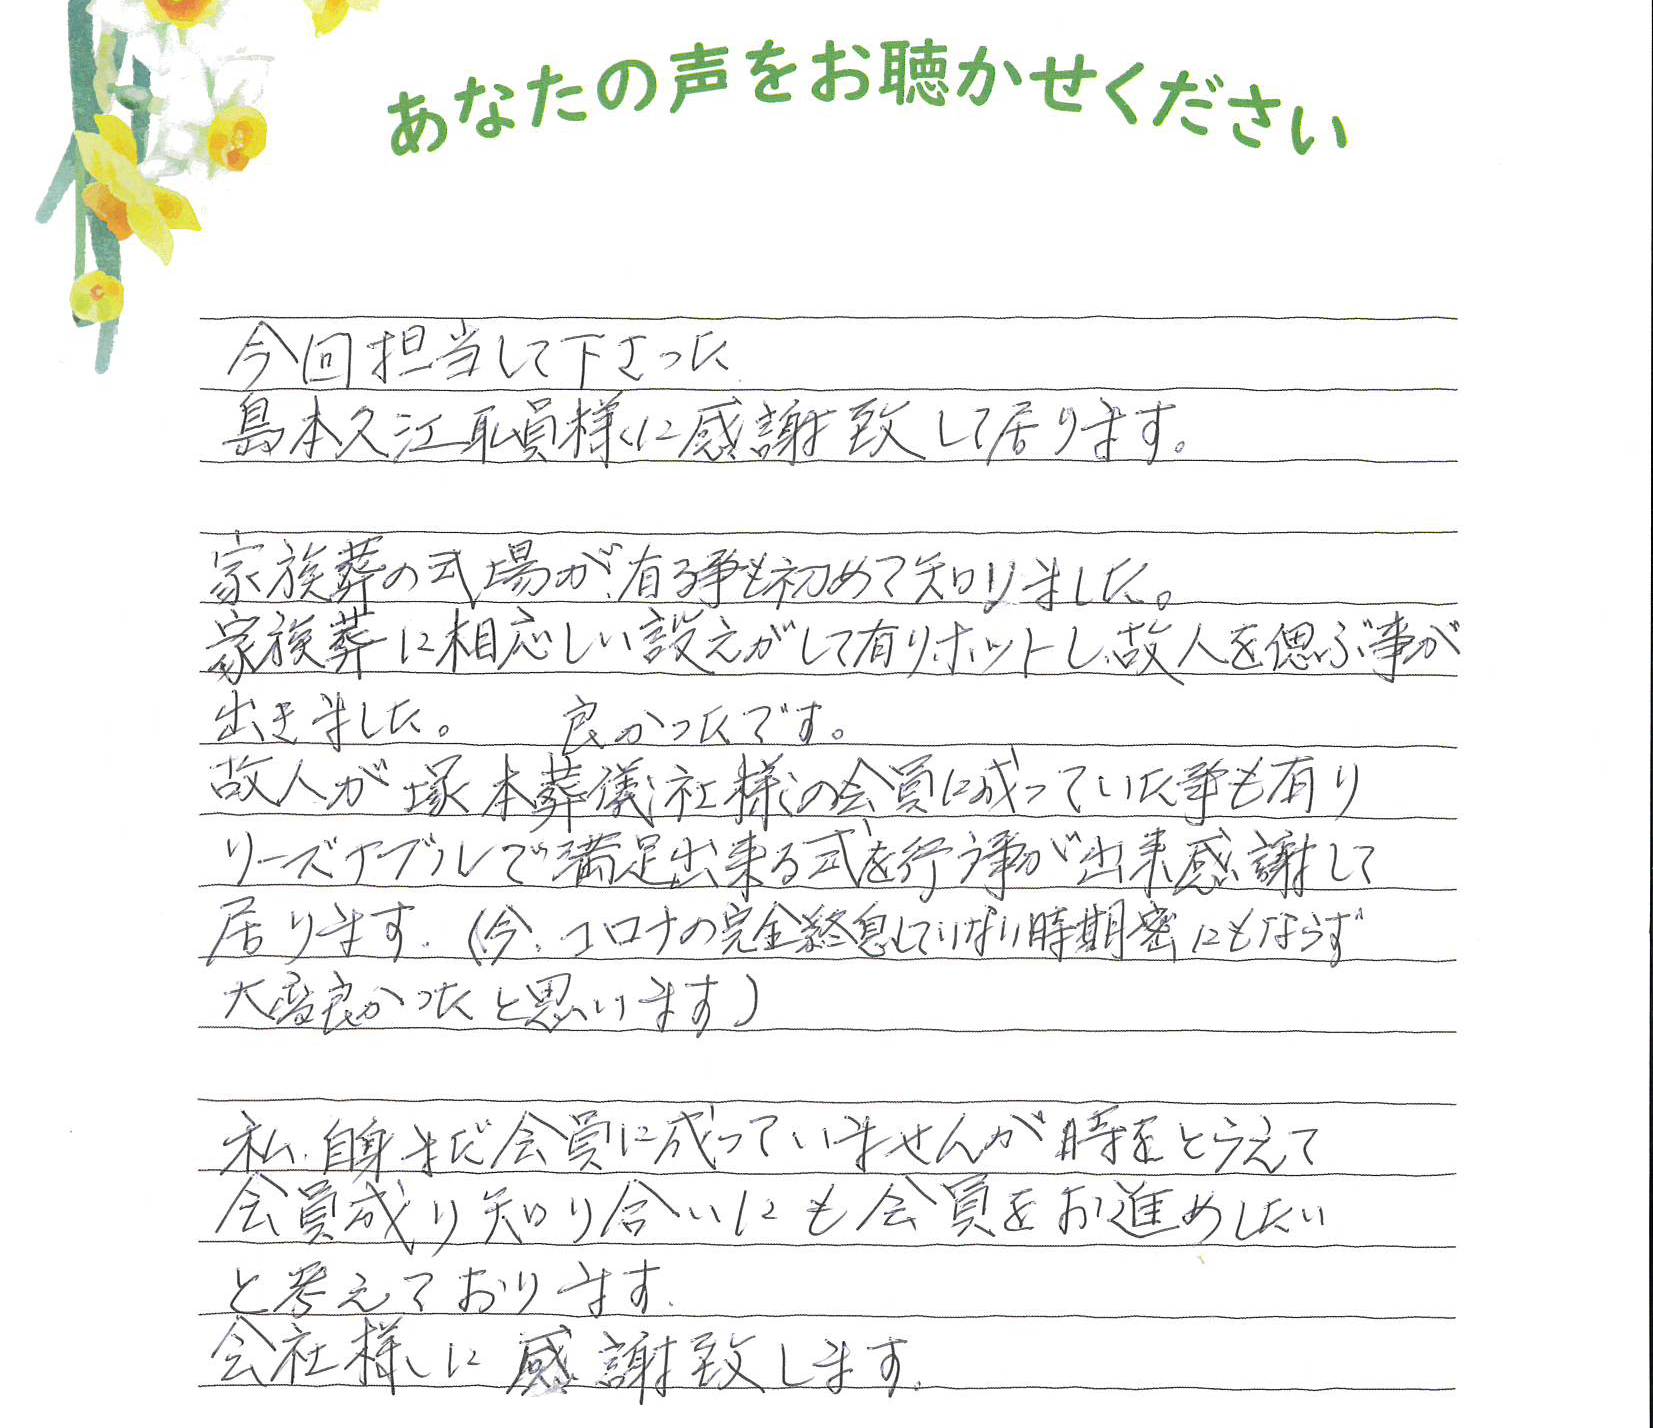 あなたの声をお聴かせください
今回担当して下さった
島本久江職員様に感謝致して居ります。
家族葬の式場が有る事も初めて知りました。
家族葬に相応しい設えがして有りホットし故人を偲ぶ事が
出きました。 良かったです。
故人が塚本葬儀社様の会員に成っていた事も有り
リーズナブルで満足出来る式を行う事が出来感謝して
居ります。(今、コロナの完全終息していない時期密にもならず
大変良かったと思います)
私、自身まだ会員に成っていませんが時をとらえて
会員成り知り合いにも会員をお進めしたい
と考えております。
会社様に感謝致します。